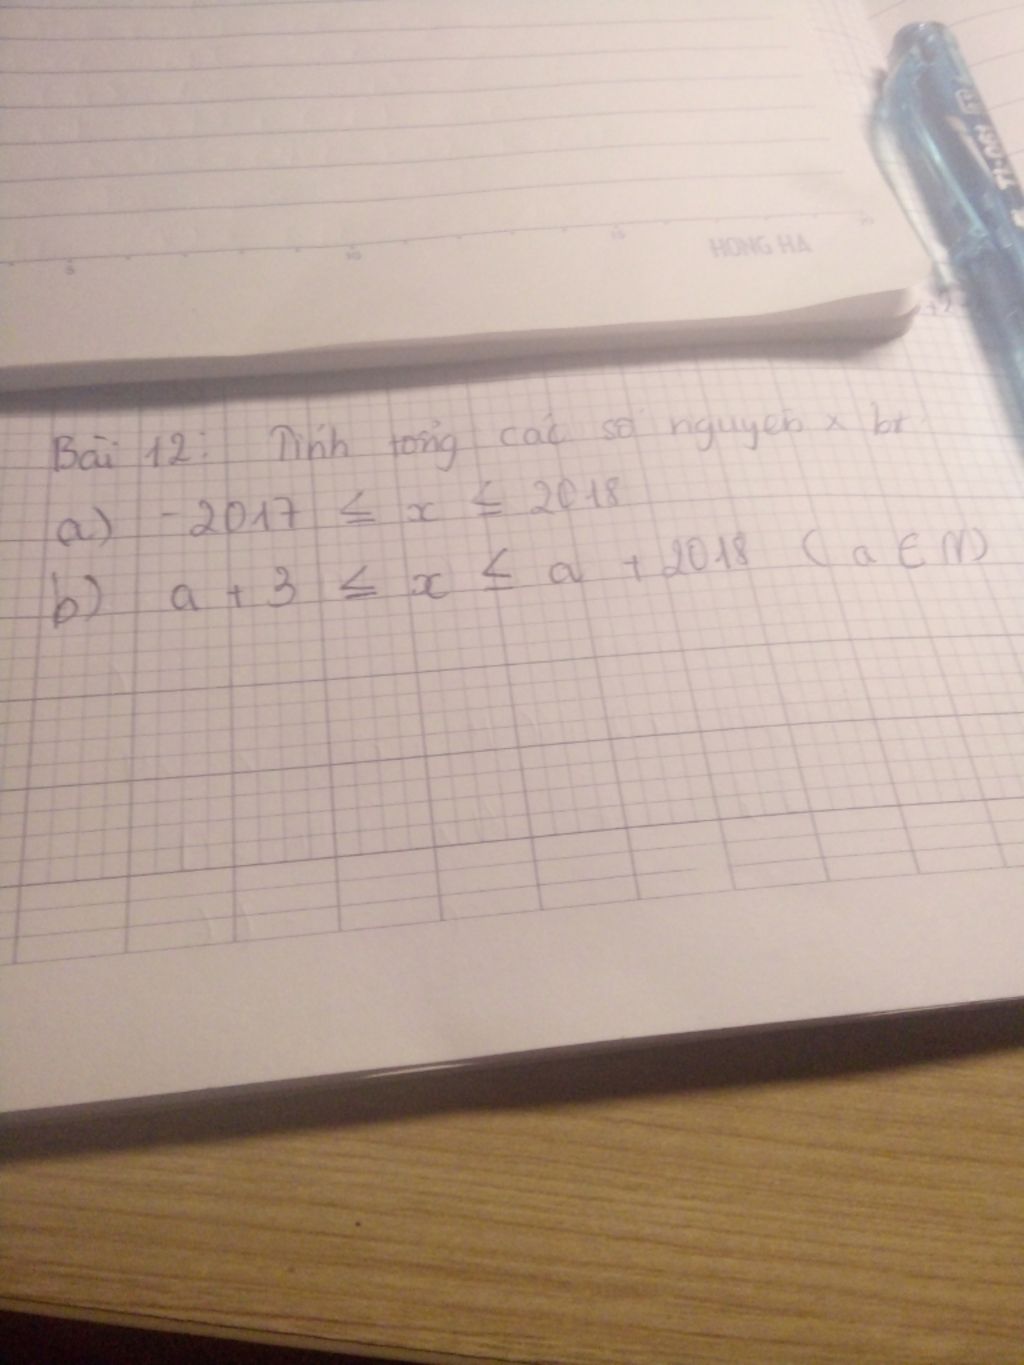 5 10 15 20
HONG HA
Bài 12: Tính tổng các số nguyên x bt
a) -2017 ≤ x ≤ 2018
b) a + 3 ≤ x ≤ a + 2018 ( a ∈ N)